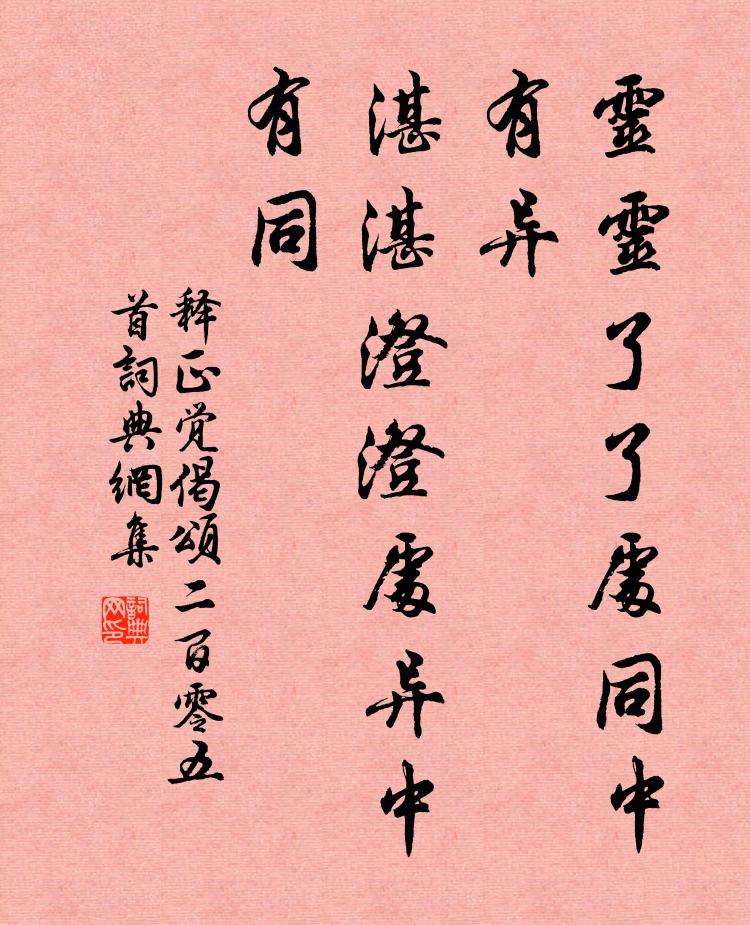 靈靈了了處同中
有异
湛湛澄澄處异中
有同
释正觉偈頌二百零五
首詞典網集
詞典网印